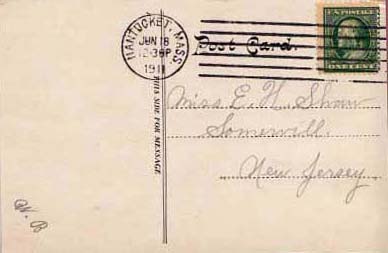 NANTUCKET, MASS.
JUN 18
12-30P
1911
Post Card.
THIS SIDE FOR MESSAGE
Miss E. H. Shaw
Somervill.
New Jersey